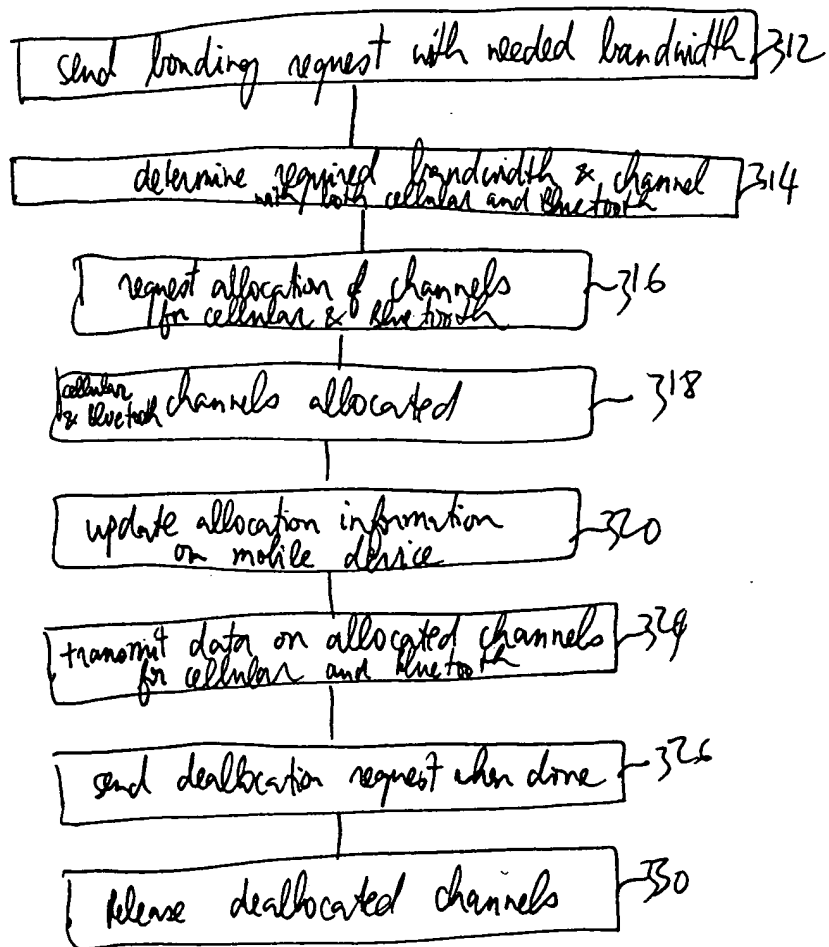 send bonding request with needed bandwidth 312
determine required bandwidth & channel 314
with both cellular and Bluetooth
request allocation of channels 316
for cellular & Bluetooth
cellular
& Bluetooth channels allocated 318
update allocation information
on mobile device 320
transmit data on allocated channels 324
for cellular and Bluetooth
send deallocation request when done 326
Release deallocated channels 330